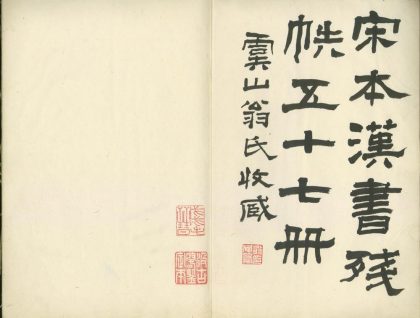 宋本漢書殘
帙五十七册
虞山翁氏收臧